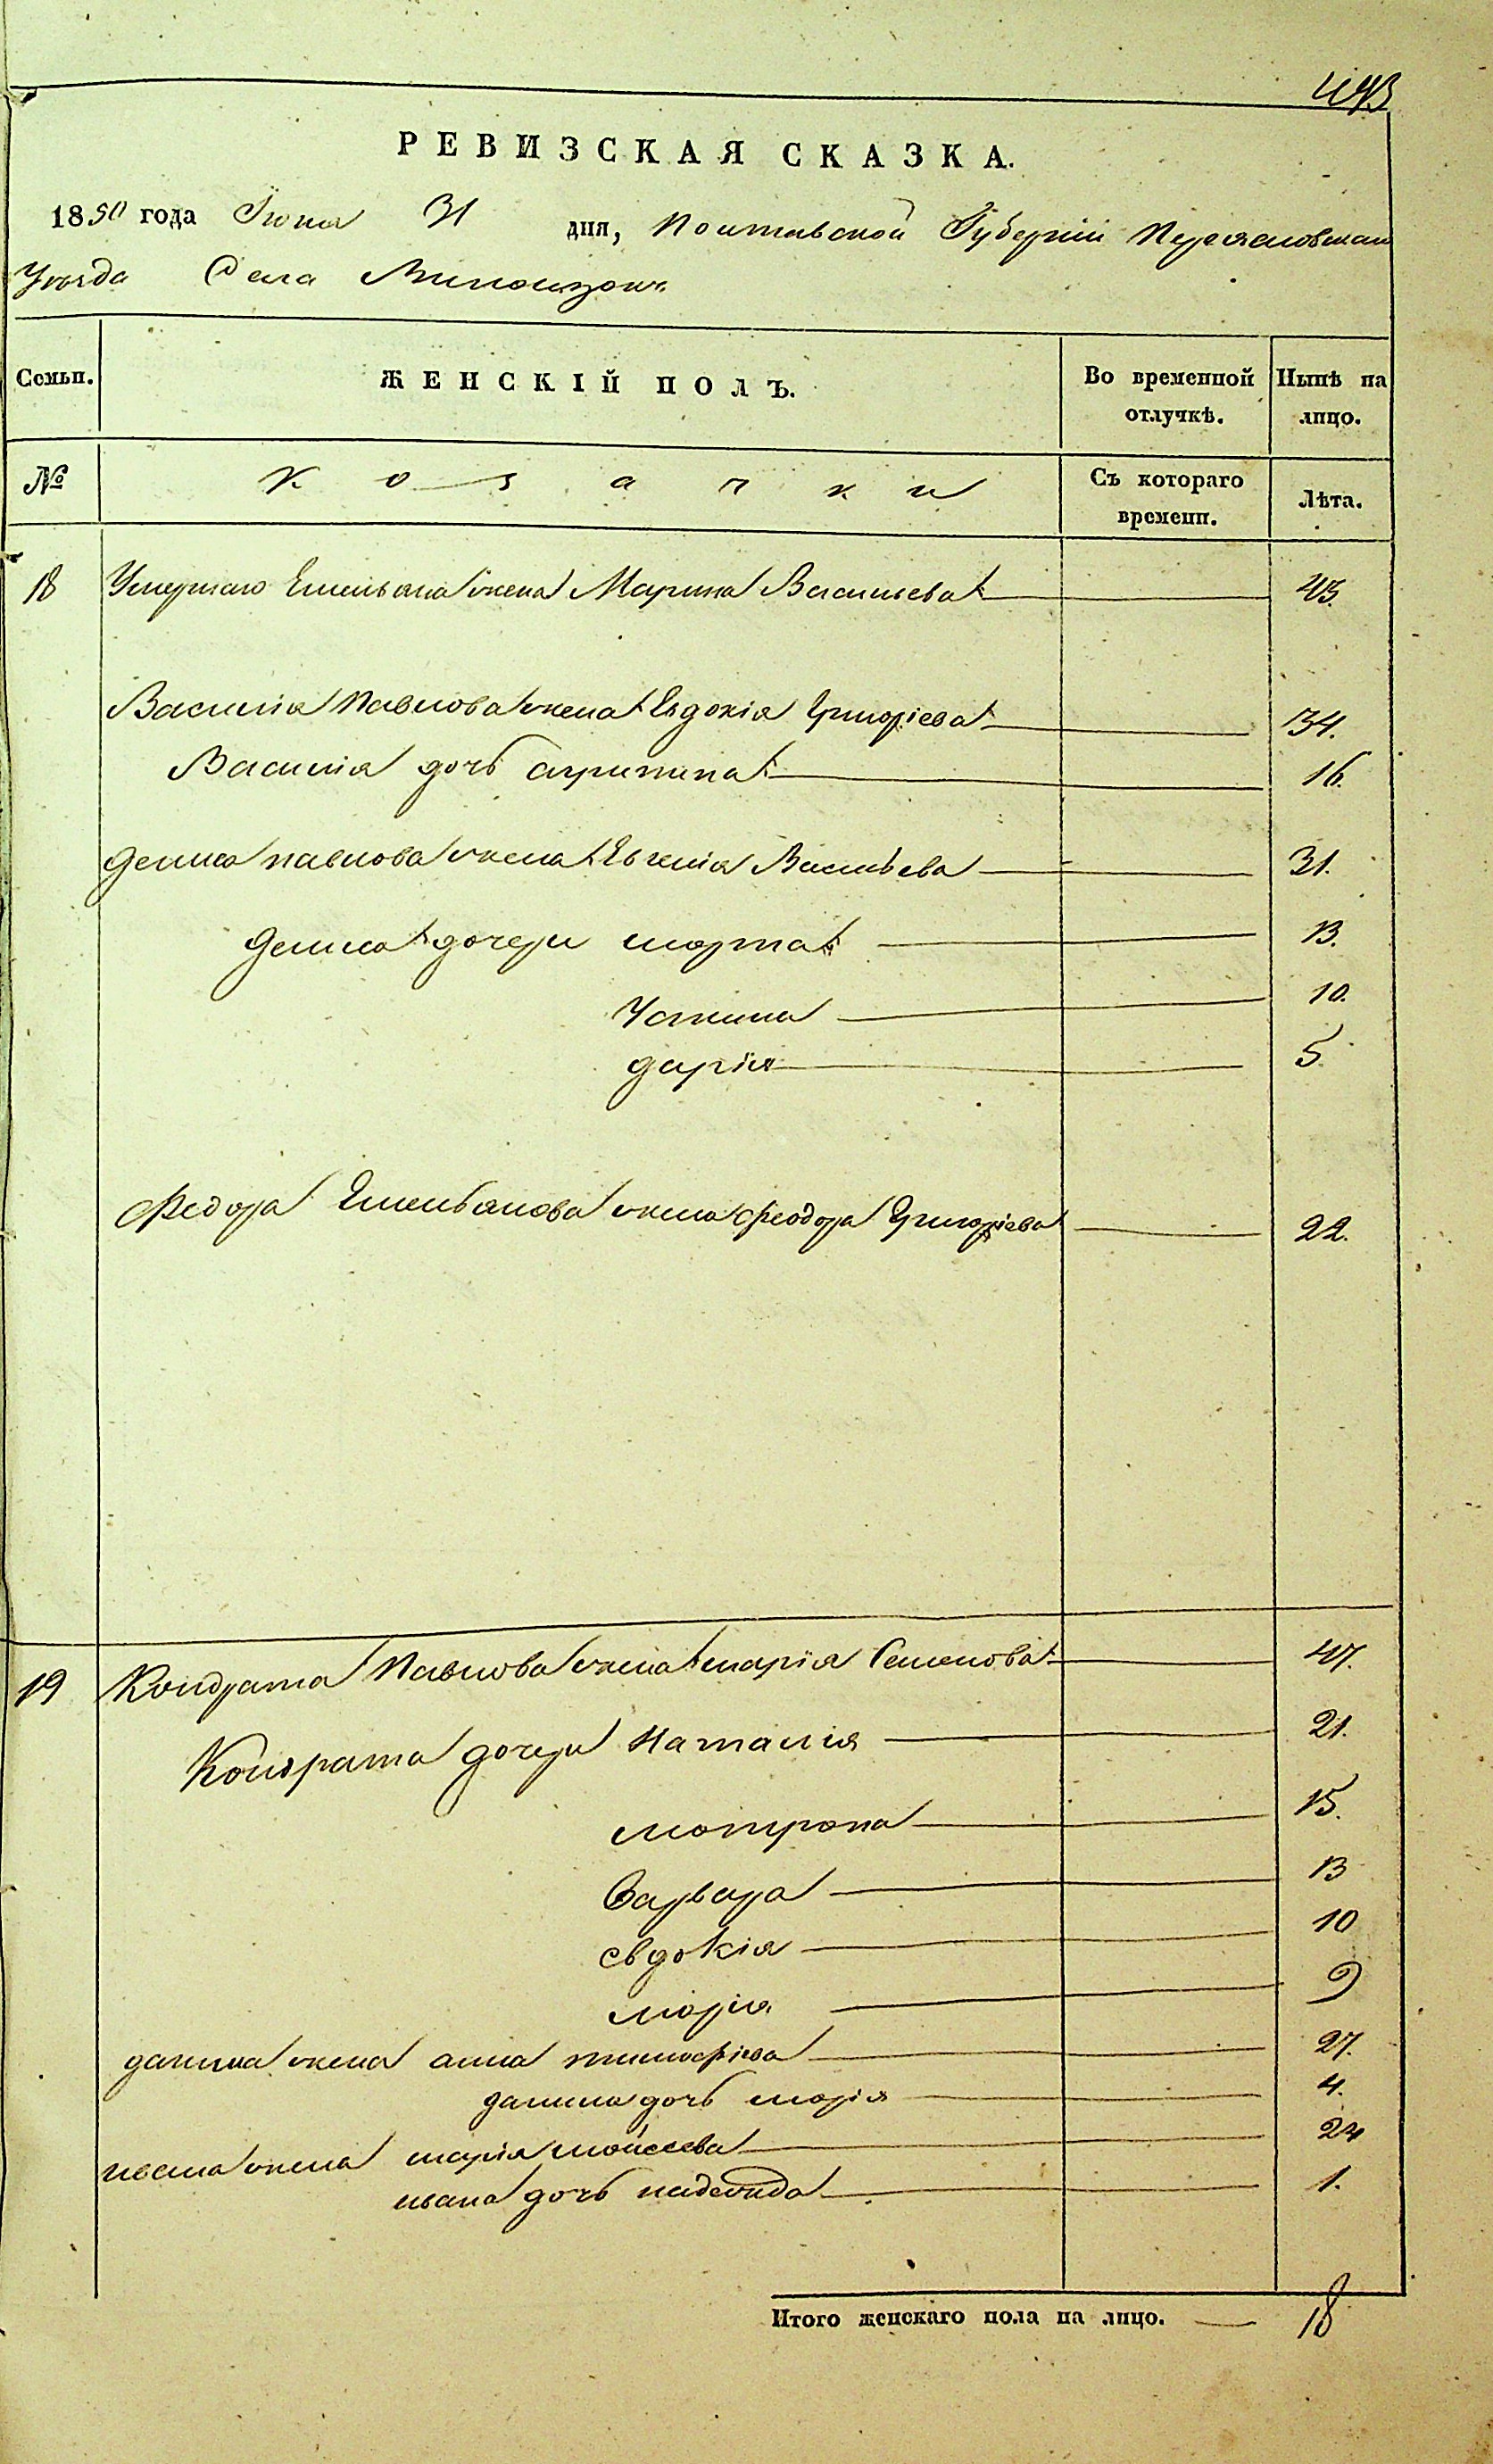 493
РЕВИЗСКАЯ СКАЗКА.
1850 года Іюня 31 дня, Полтавской Губерніи Переясловскаго
Уезда Села
Семьи. ЖЕНСКІЙ ПОЛЪ. Во временной отлучкѣ. Нынѣ на лицо.
№ Козачки Съ котораго времени. Лѣта.
18 Умершаго Емельяна жена Марина Васильева 43.
Василія Павлова жена Евдокія Григоріева 34.
Василія дочь агрипина 16.
демида павлова жена Евгенія Васильева 31.
демида дочери марта 13.
Устина 10.
дарія 5.
Федора Емельянова жена феодора Григоріева 22.
19 Кондрата Павлова жена марія Семенова 47.
Кондрата дочери Наталія 21.
мотрона 15.
варвара 13
евдокія 10
марія 9
данила жена анна тимофіева 27.
данила дочь марія 4.
ивана жена марія моисеева 24
ивана дочь надежда 1.
Итого женскаго пола на лицо. — 18